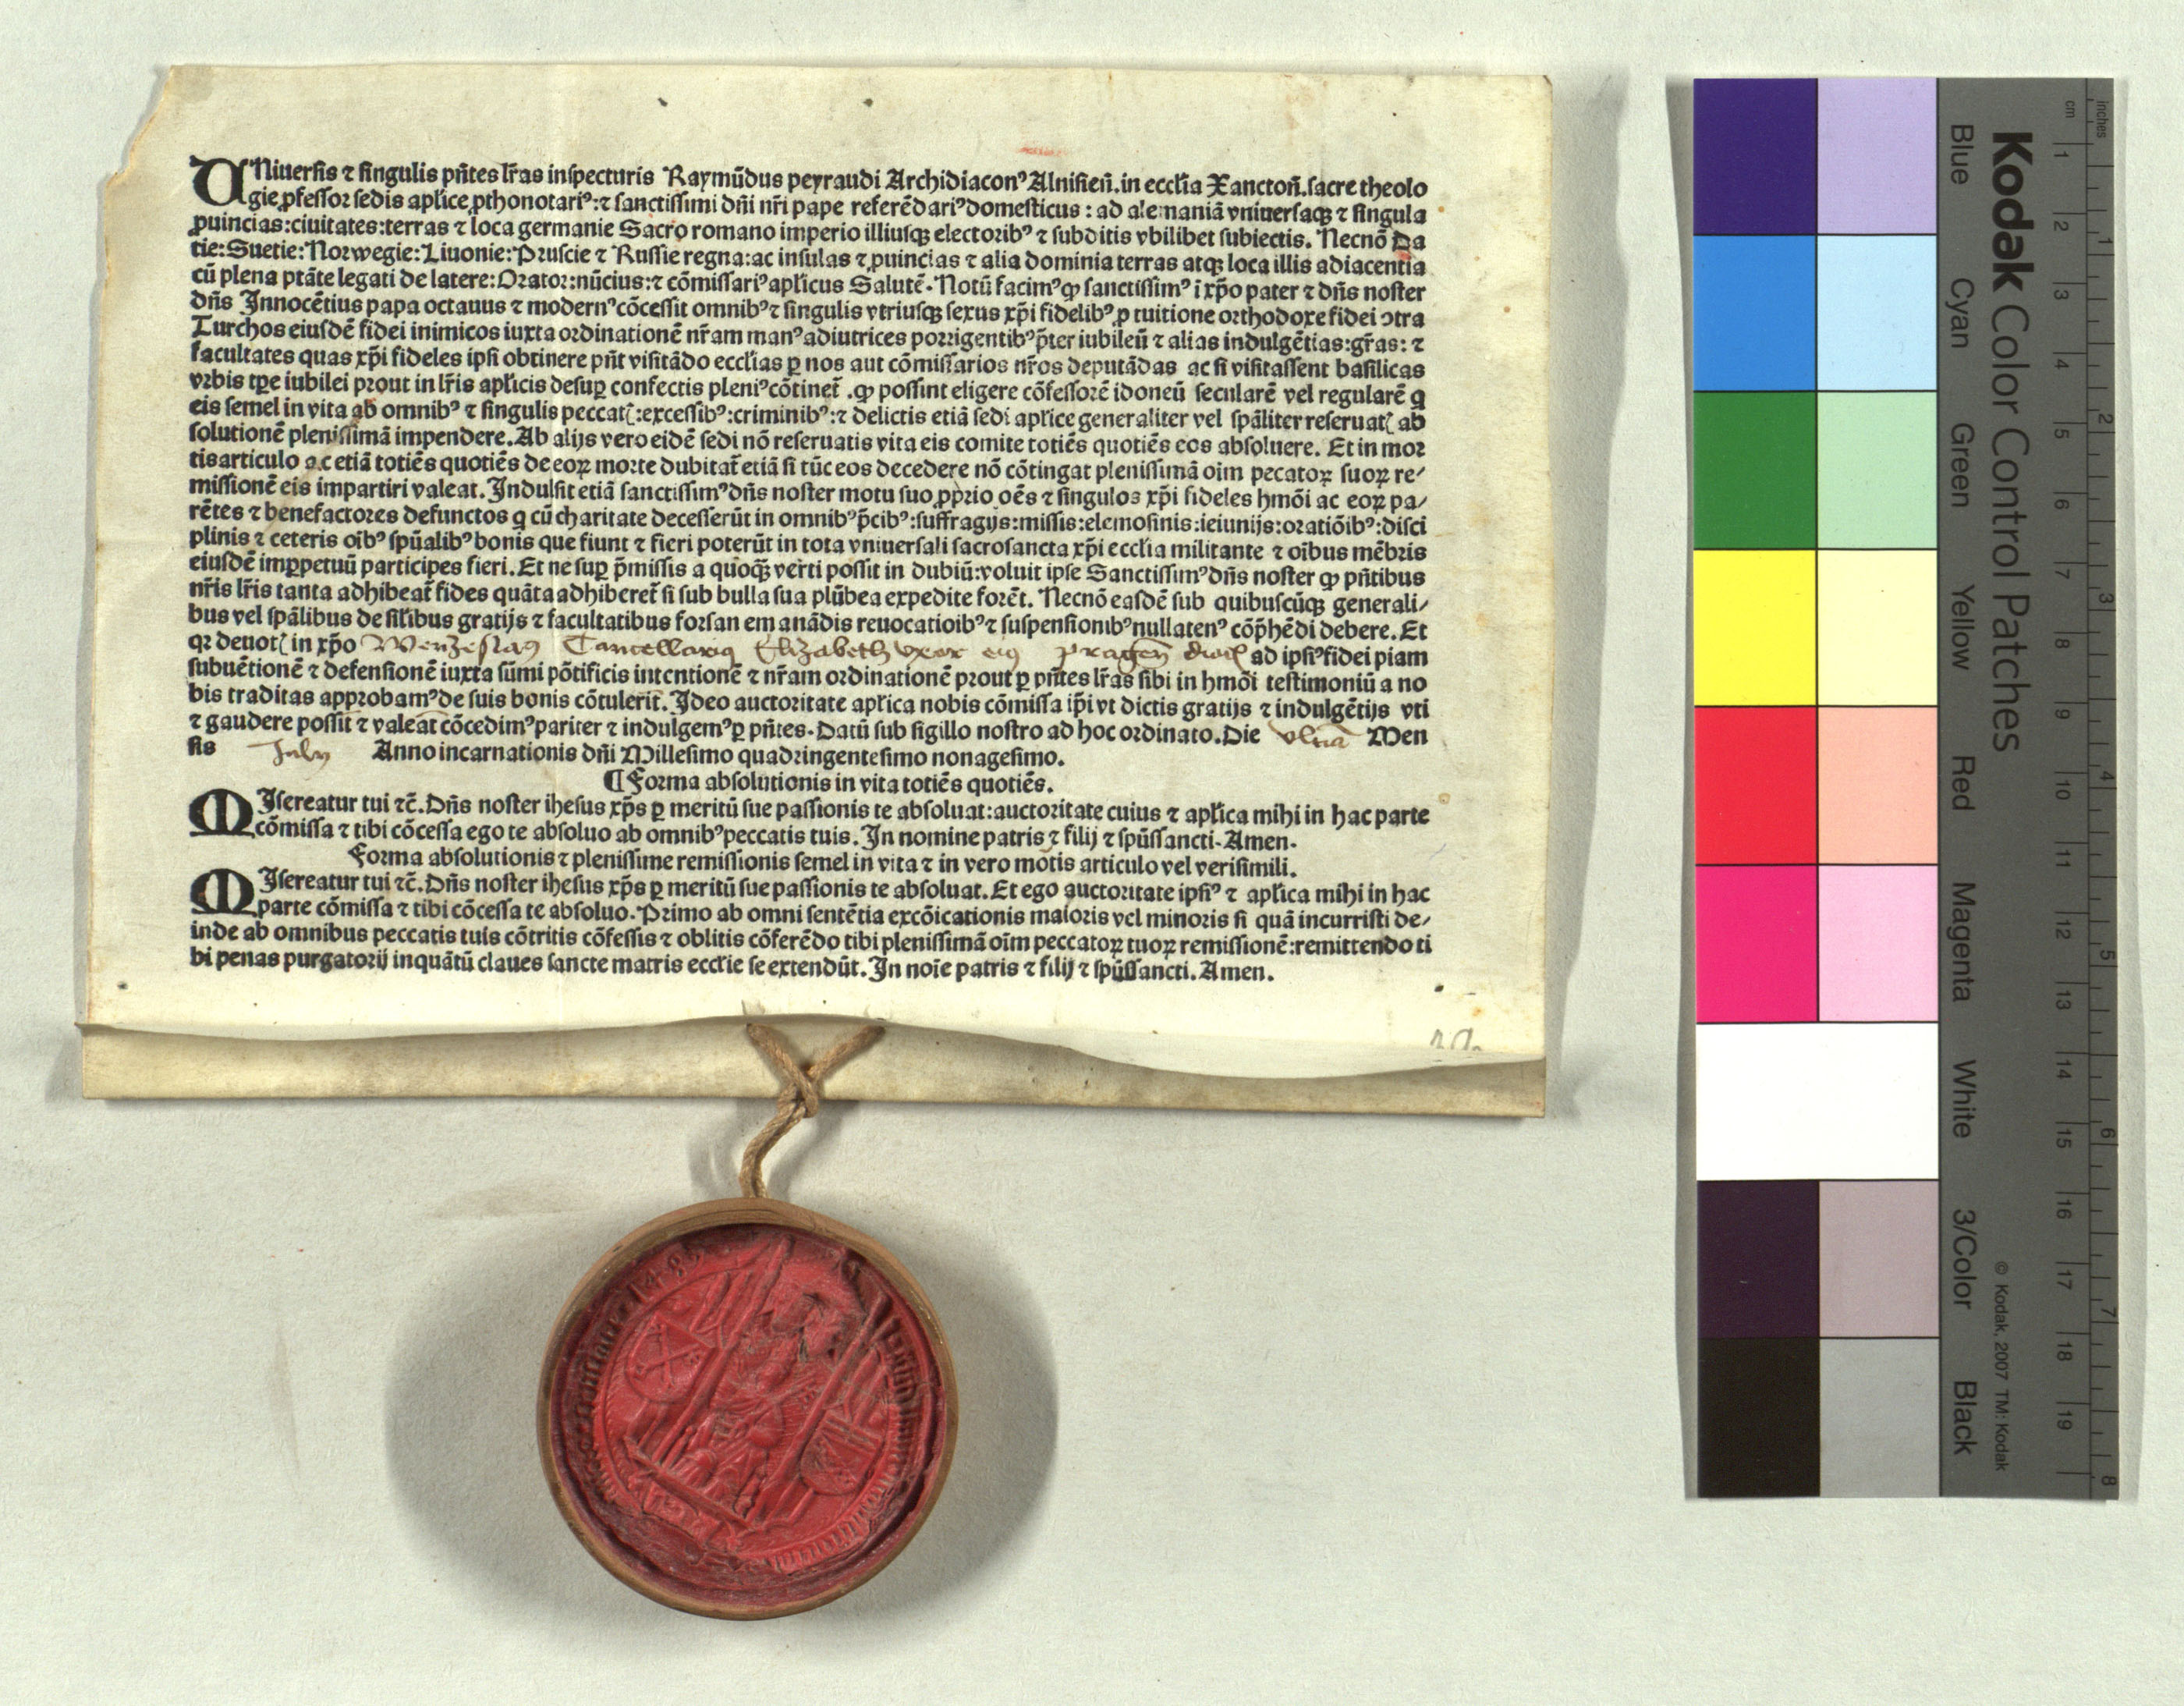 UNiuerſis ⁊ ſingulis pn̄tes lr̄as inſpecturis Raymūdus peyraudi Archidiaconꝰ Alniſien̄.in eccl̄ia Xancton̄.ſacre theolo
gie ꝓfeſſor ſedis apl̄ice ꝓthonotariꝰ:⁊ ſanctiſſimi dn̄i nr̄i pape referēdariꝰ domeſticus : ad alemaniā vniuerſaqꝫ ⁊ ſingula
ꝓuincias:ciuitates:terras ⁊ loca germanie Sacro romano imperio illiuſqꝫ electoribꝰ ⁊ ſubditis vbilibet ſubiectis. Necnō Da
tie:Suetie:Norwegie:Liuonie:Pruſcie ⁊ Ruſſie regna:ac inſulas ⁊ ꝓuincias ⁊ alia dominia terras atqꝫ loca illis adiacentia
cū plena ptāte legati de latere:Orator:nūcius:⁊ cōmiſſariꝰ apl̄icus Salutē. Notū facimꝰ ꝙ ſanctiſſimꝰ ī xp̄o pater ⁊ dn̄s noſter
dn̄s Innocētius papa octauus ⁊ modernꝰ cōceſſit omnibꝰ ⁊ ſingulis vtriuſqꝫ ſexus xp̄i fidelibꝰ ꝓ tuitione orthodoxe fidei ↄtra
Turchos eiuſdē fidei inimicos iuxta ordinationē nr̄am manꝰ adiutrices porrigentibꝰ p̄ter iubileū ⁊ alias indulgētias:gr̄as: ⁊
facultates quas xp̄i fideles ipſi obtinere pn̄t viſitādo eccl̄ias ꝑ nos aut cōmiſſarios nr̄os deputādas ac ſi viſitaſſent baſilicas
vrbis tp̄e iubilei prout in lr̄is apl̄icis deſuꝑ confectis pleniꝰ cōtinet̄ .ꝙ poſſint eligere cōfeſſorē idoneū ſecularē vel regularē q
eis ſemel in vita ab omnibꝰ ⁊ ſingulis peccatꝭ:exceſſibꝰ:criminibꝰ:⁊ delictis etiā ſedi apl̄ice generaliter vel ſpāliter reſeruatꝭ ab
ſolutionē pleniſſimā impendere. Ab alijs vero eidē ſedi nō reſeruatis vita eis comite totiēs quotiēs eos abſoluere. Et in mor
tis articulo ac etiā totiēs quotiēs de eoꝝ morte dubitat̄ etiā ſi tūc eos decedere nō cōtingat pleniſſimā oīm pecatoꝝ ſuoꝝ re⸗
miſſionē eis impartiri valeat. Indulſit etiā ſanctiſſimꝰ dn̄s noſter motu ſuo ꝓprio oēs ⁊ ſingulos xp̄i fideles hmōi ac eoꝝ pa⸗
rētes ⁊ benefactores defunctos q cū charitate deceſſerūt in omnibꝰ p̄cibꝰ:ſuffragijs:miſſis:elemoſinis:ieiunijs:oratiōibꝰ:diſci
plinis ⁊ ceteris oibꝰ ſpūalibꝰ bonis que fiunt ⁊ fieri poterūt in tota vniuerſali ſacroſancta xp̄i eccl̄ia militante ⁊ oibus mēbris
eiuſdē imꝑpetuū participes fieri. Et ne ſuꝑ p̄miſſis a quoqꝫ verti poſſit in dubiū:voluit ipſe Sanctiſſimꝰ dn̄s noſter ꝙ pn̄tibus
nr̄is lr̄is tanta adhibeat̄ fides quāta adhiberet̄ ſi ſub bulla ſua plūbea expedite forēt. Necnō eaſdē ſub quibuſcūqꝫ generali⸗
bus vel ſpālibus de ſil̄ibus gratijs ⁊ facultatibus forſan emanādis reuocatioibꝰ ⁊ ſuſpenſionibꝰ nullatenꝰ cōp̄hēdi debere. Et
qꝛ deuotꝭ in xp̄o Wenzeslaꝰ Cancellariꝰ Elizabeth vxor eiꝰ pragen̄ dioc̄ ad ipſiꝰ fidei piam
ſubuētionē ⁊ defenſionē iuxta ſūmi pōtificis intentionē ⁊ nr̄am ordinationē prout ꝑ pn̄tes lr̄as ſibi in hmōi teſtimoniū a no
bis traditas approbamꝰ de ſuis bonis cōtulerit. Ideo auctoritate apl̄ica nobis cōmiſſa ip̄i vt dictis gratijs ⁊ indulgētijs vti
⁊ gaudere poſſit ⁊ valeat cōcedimꝰ pariter ⁊ indulgemꝰ ꝑ pn̄tes. Datū ſub ſigillo noſtro ad hoc ordinato. Die vltīa Men
ſis July Anno incarnationis dn̄i Milleſimo quadringenteſimo nonageſimo.
¶ Forma abſolutionis in vita totiēs quotiēs.
MIſereatur tui ⁊c̄. Dn̄s noſter iheſus xp̄s ꝑ meritū ſue paſſionis te abſoluat:auctoritate cuius ⁊ apl̄ica mihi in hac parte
cōmiſſa ⁊ tibi cōceſſa ego te abſoluo ab omnibꝰ peccatis tuis. In nomine patris ⁊ filij ⁊ ſpūſſancti. Amen.
Forma abſolutionis ⁊ pleniſſime remiſſionis ſemel in vita ⁊ in vero motis articulo vel veriſimili.
MIſereatur tui ⁊c̄. Dn̄s noſter iheſus xp̄s ꝑ meritū ſue paſſionis te abſoluat. Et ego auctoritate ipſiꝰ ⁊ apl̄ica mihi in hac
parte cōmiſſa ⁊ tibi cōceſſa te abſoluo. Primo ab omni ſentētia excōicationis maioris vel minoris ſi quā incurriſti de⸗
inde ab omnibus peccatis tuis cōtritis cōfeſſis ⁊ oblitis cōferēdo tibi pleniſſimā oīm peccatoꝝ tuoꝝ remiſſionē:remittendo ti
bi penas purgatorij inquātū claues ſancte matris eccl̄ie ſe extendūt. In noīe patris ⁊ filij ⁊ ſpūſſancti. Amen.
Kodak Color Control Patches
© Kodak, 2007 TM: Kodak
Blue Cyan Green Yellow Red Magenta White 3/Color Black
cm 1 2 3 4 5 6 7 8 9 10 11 12 13 14 15 16 17 18 19
inches 1 2 3 4 5 6 7 8